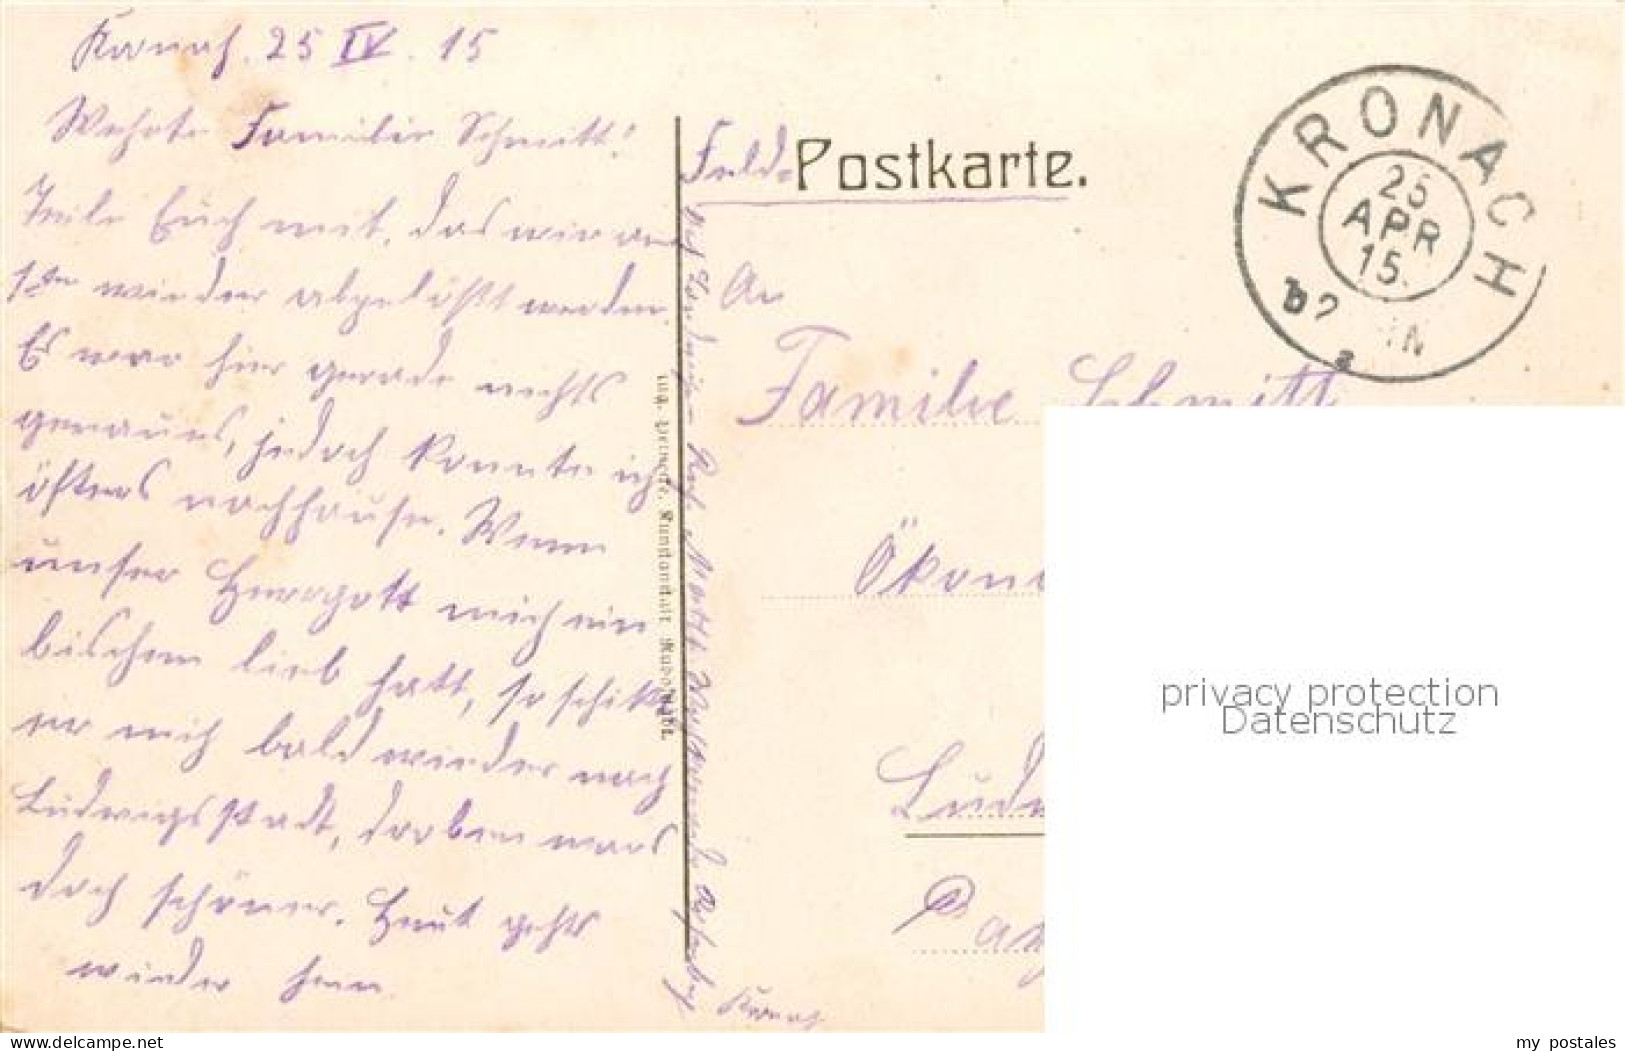 Kronach. 25 IV. 15
Werte Familie Schmitt!
Teile Euch mit, das wir am
1ten wieder abgelößt werden.
Es war hier gerade nichts
genaues, jedoch konnte ich
öfters nachhause. Wenn
unser Herrgott mich ein
bischen lieb hatt, so schikt
er mich bald wieder nach
Ludwigsstadt, droben wars
doch schöner. Heut gehts
wieder heim.
Feld=Postkarte.
An
Familie Schmitt
Ökono
Ludw
Bay
Kronach
KRONACH
25
APR
15.
privacy protection
Datenschutz
my postales